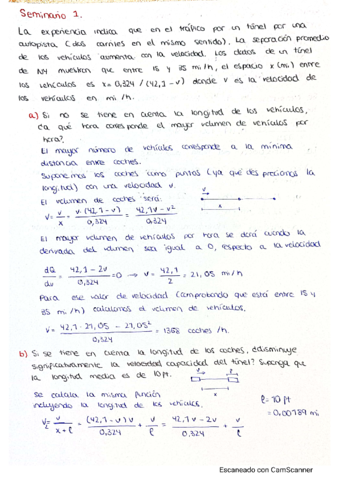 Seminario 1.
La experiencia indica que en el tráfico por un túnel por una
autopista (dos carriles en el mismo sentido). La separación promedio
de los vehículos aumenta con la velocidad. Los datos de un túnel
de NY muestran que entre 15 y 35 mi/h, el espacio x (mi) entre
los vehículos es x = 0,324 / (42,1 - v) donde v es la velocidad de
los vehículos en mi/h.
a) Si no se tiene en cuenta la longitud de los vehículos,
¿a qué hora corresponde el mayor volumen de vehículos por
hora?
El mayor número de vehículos corresponde a la mínima
distancia entre coches.
Suponemos los coches como puntos (ya que despreciamos la
longitud) con una velocidad v.
El volumen de coches será:
v = v/x = v·(42,1 - v)/0,324 = 42,1v - v²/0,324
El mayor volumen de vehículos por hora se dará cuando la
derivada del volumen sea igual a 0, respecto a la velocidad
dQ/dv = 42,1 - 2v/0,324 = 0 → v = 42,1/2 = 21,05 mi/h
Para ese valor de velocidad (comprobando que está entre 15 y
35 mi/h) calculamos el volumen de vehículos.
v = 42,1 · 21,05 - 21,05²/0,324 = 1368 coches/h.
b) Si se tiene en cuenta la longitud de los coches, ¿disminuye
significativamente la velocidad capacidad del túnel? Suponga que
la longitud media es de 10 ft.
Se calcula la misma función
incluyendo la longitud de los vehículos.
l = 10 ft
0,00189 mi
v = v/x + l = (42,1 - v)v/0,324 + v/l = 42,1v - 2v/0,324 + v/l
Escaneado con CamScanner